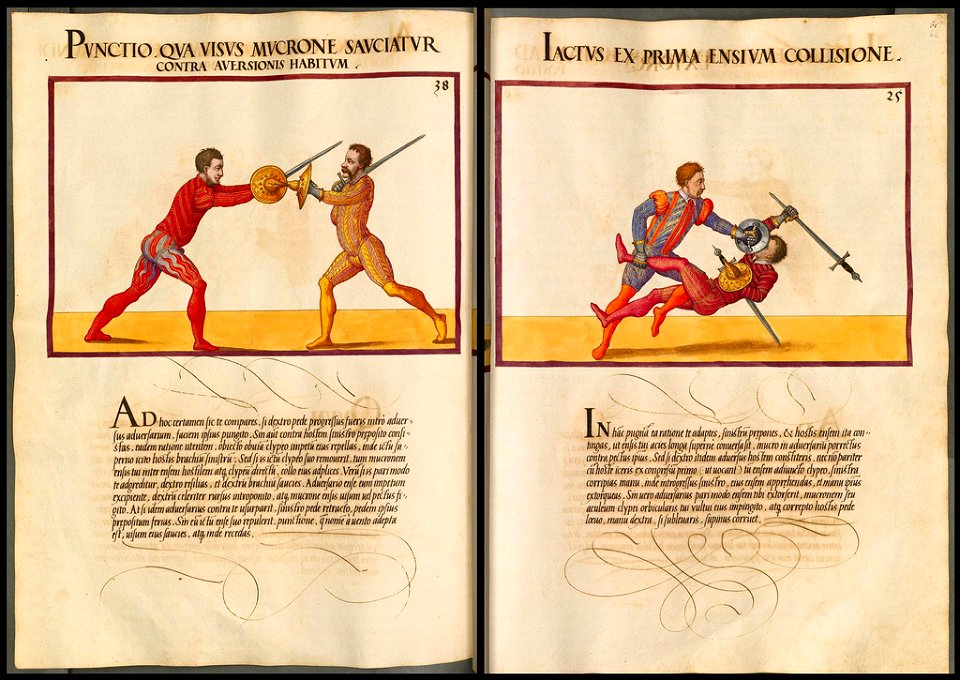 PVNCTIO QVA VISVS MVCRONE SAVCIATVR
CONTRA AVERSIONIS HABITVM.
38
AD hoc certamen sic te compares, si dextro pede progressus fueris intro aduer-
sus aduersarium, faciem ipsius pungito. Sin aut contra hostem sinistro preposito consi-
stas, eadem ratione utentem, obiectu oduli clypeo impetu eius repellas, inde ictu su-
perno uel infesto hostis brachiu sinistru. Sed si is ictu clypeo suo remouerit, tum mucronem
ensis tui inter ensem hostilem atq clypeu directu, collo eius adplices. Veru si is pari modo
te adgreditur, dextro resilias, et dextru brachiu saucies. Aduersario ense tuum impetum
excipiente, dextru celeriter rursus introponito, atq mucrone ensis uisum uel pectus fi-
gito. At si idem aduersarius contra te usurparit, sinistro pede retracto, pedem ipsius
prepositum ferias. Sin eu ictu ense suo repulerit, punctione, q nomen a uento adepta
est, uisum eius saucies, atq inde recedas.
IACTVS EX PRIMA ENSIVM COLLISIONE.
25
IN hac pugna ea ratione te adaptes, sinistru preponas, & hostis ensem ita con-
tingas, ut ensis tui acies longa superne conuersa sit, mucro in aduersarii porrectus
contra pectus ipsius. Sed si dextro itidem aduersus hostem constiteris, nec no pariter
cu hoste iceris ex congressu primo (ut uocant) tu ensem adiuncto clypeo, sinistra
corripias manu, inde introgressus sinistro, eius ensem apprehendas, et manu ipsius
extorqueas. Sin uero aduersarius pari modo ensem tibi extorserit, mucronem seu
aculeum clypei orbicularis tui uultui eius impingito, atq correpto hostis pede
læuo, manu dextra, si subleuaris, supinus corruet.